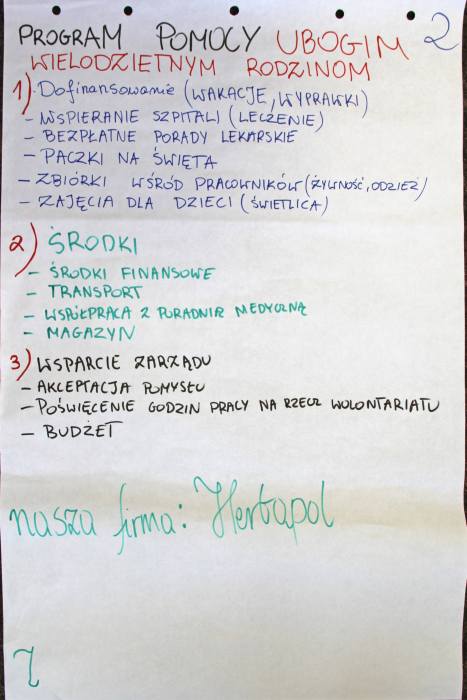 PROGRAM POMOCY UBOGIM 2
WIELODZIETNYM RODZINOM
1) Dofinansowanie (WAKACJE, WYPRAWKI)
- WSPIERANIE SZPITALI (LECZENIE)
- BEZPŁATNE PORADY LEKARSKIE
- PACZKI NA ŚWIĘTA
- ZBIÓRKI WŚRÓD PRACOWNIKÓW (ŻYWNOŚĆ, ODZIEŻ)
- ZAJĘCIA DLA DZIECI (ŚWIETLICA)
2) ŚRODKI
- ŚRODKI FINANSOWE
- TRANSPORT
- WSPÓŁPRACA Z PORADNIĄ MEDYCZNĄ
- MAGAZYN
3) WSPARCIE ZARZĄDU
- AKCEPTACJA POMYSŁU
- POŚWIĘCENIE GODZIN PRACY NA RZECZ WOLONTARIATU
- BUDŻET
nasza firma: Herbapol